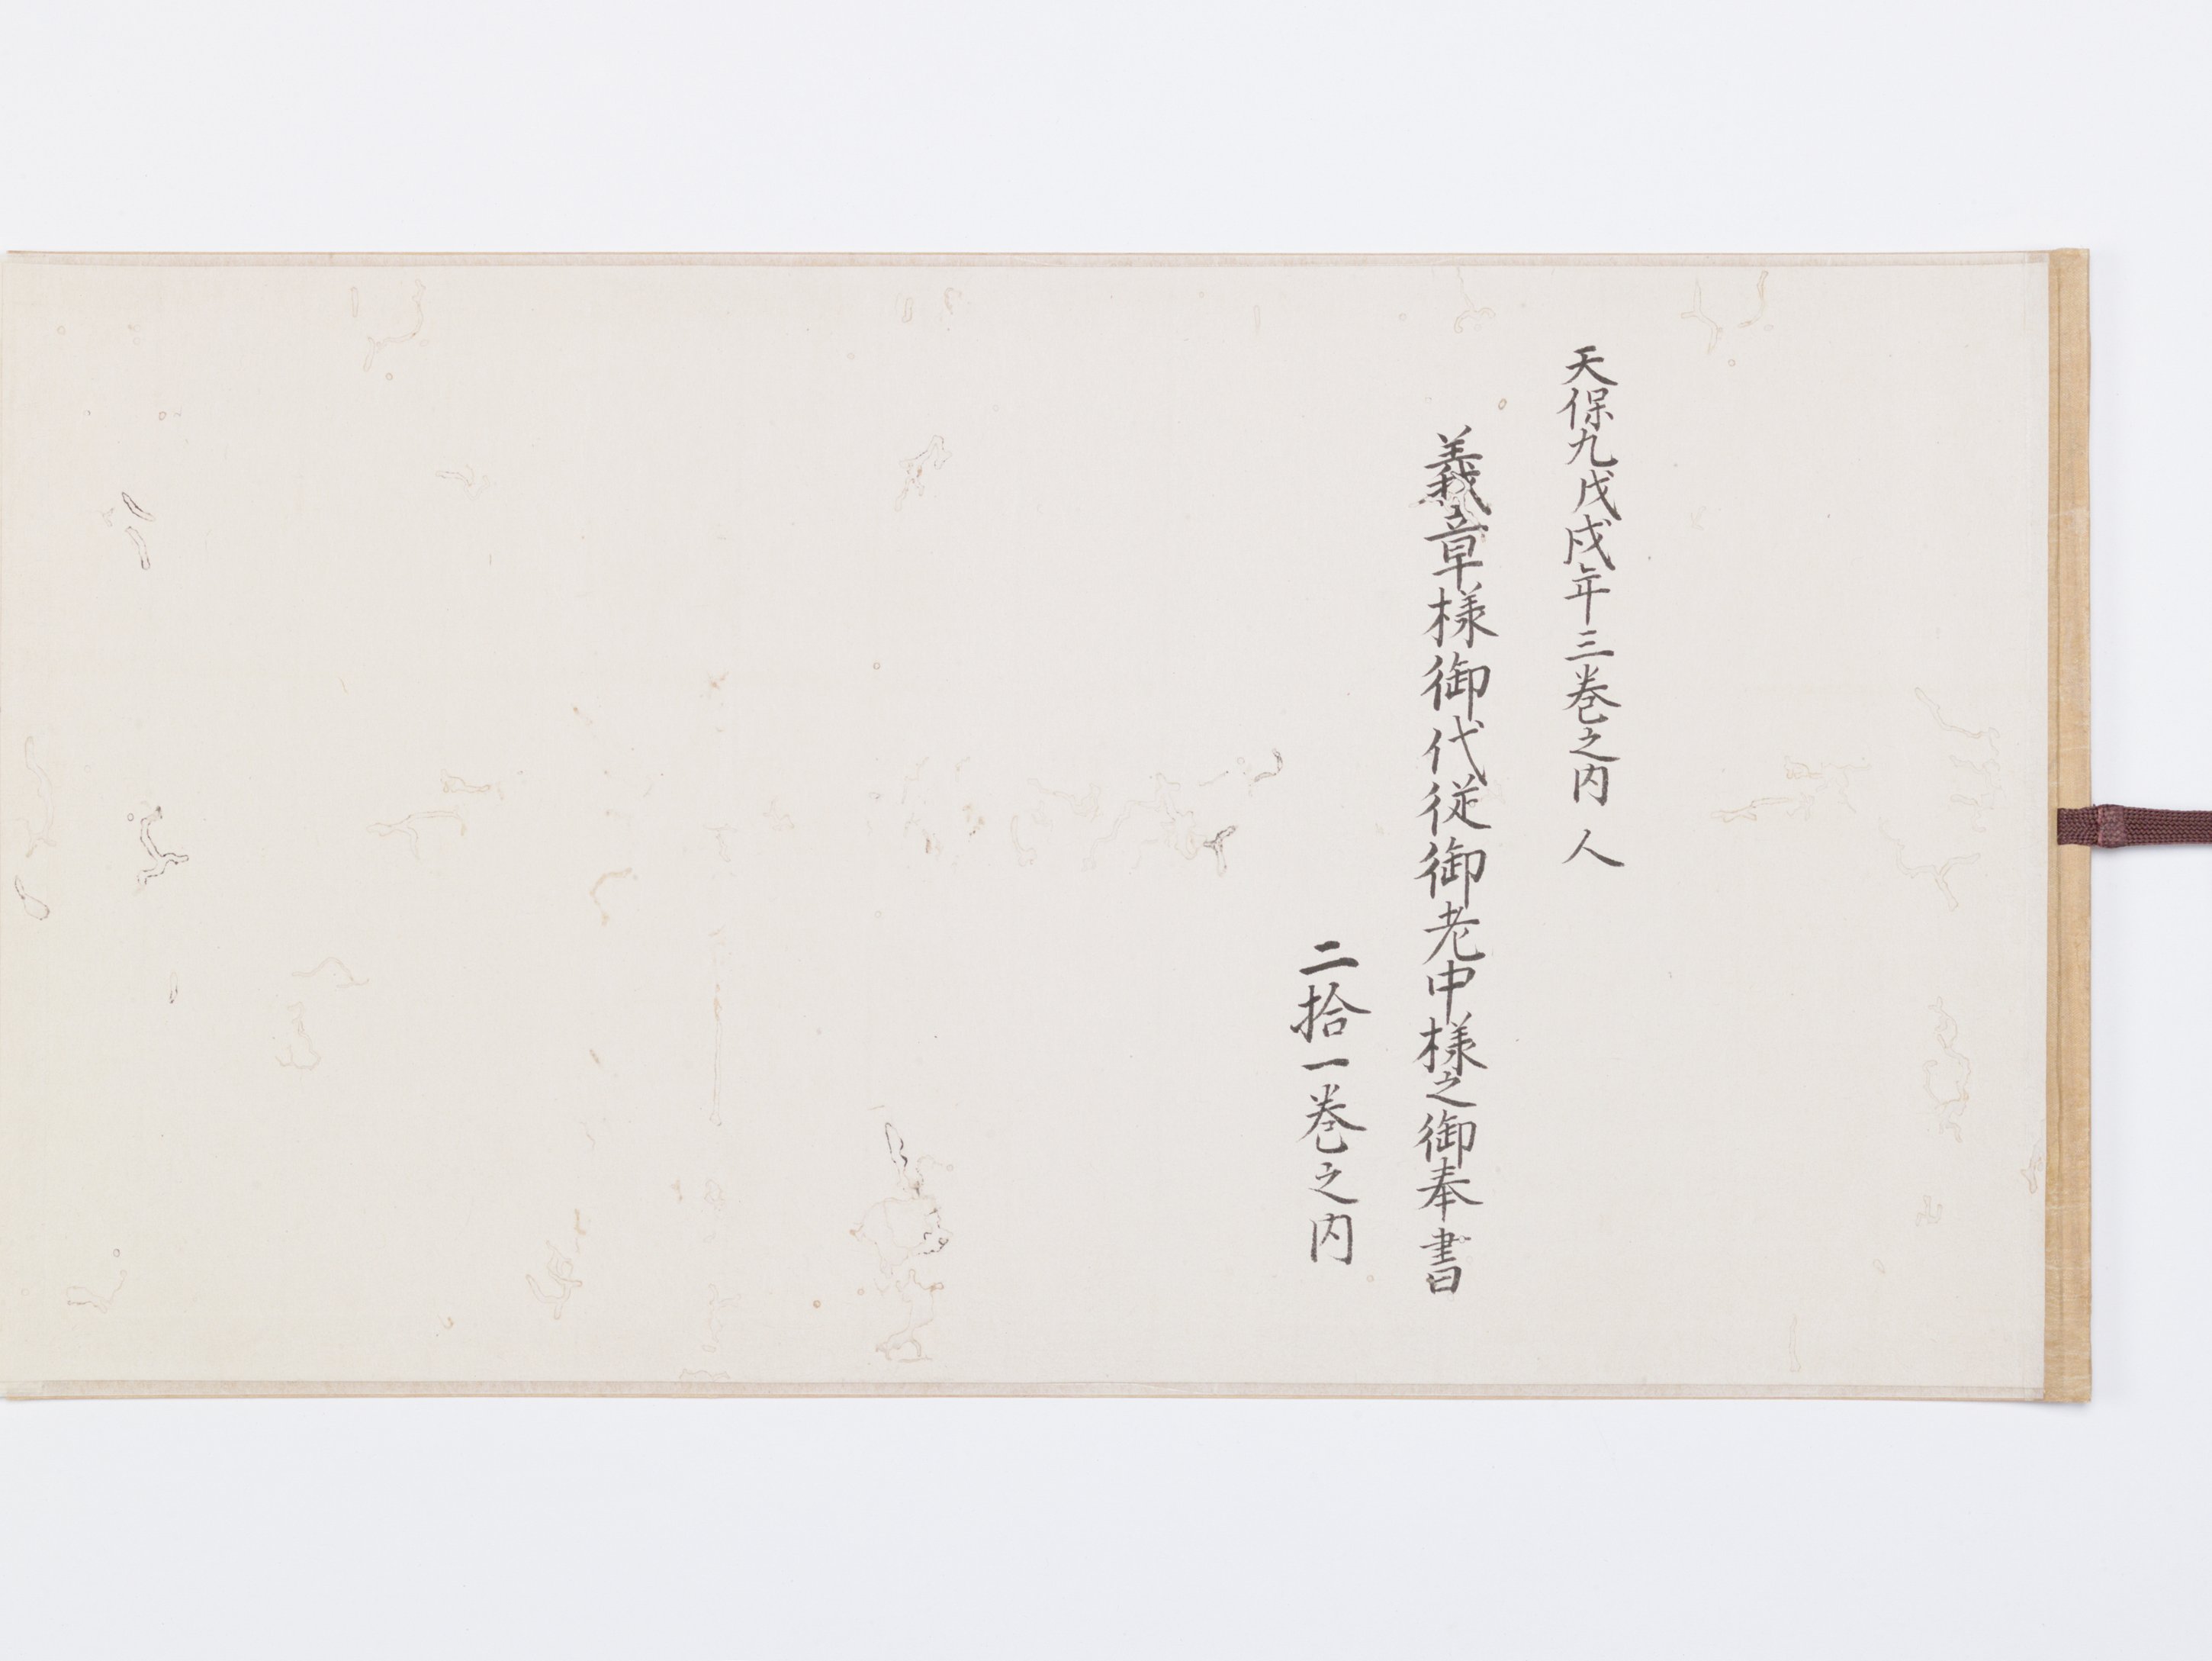 天保九戊戌年三巻之内　人
義章様御代従御老中様之御奉書
二拾一巻之内